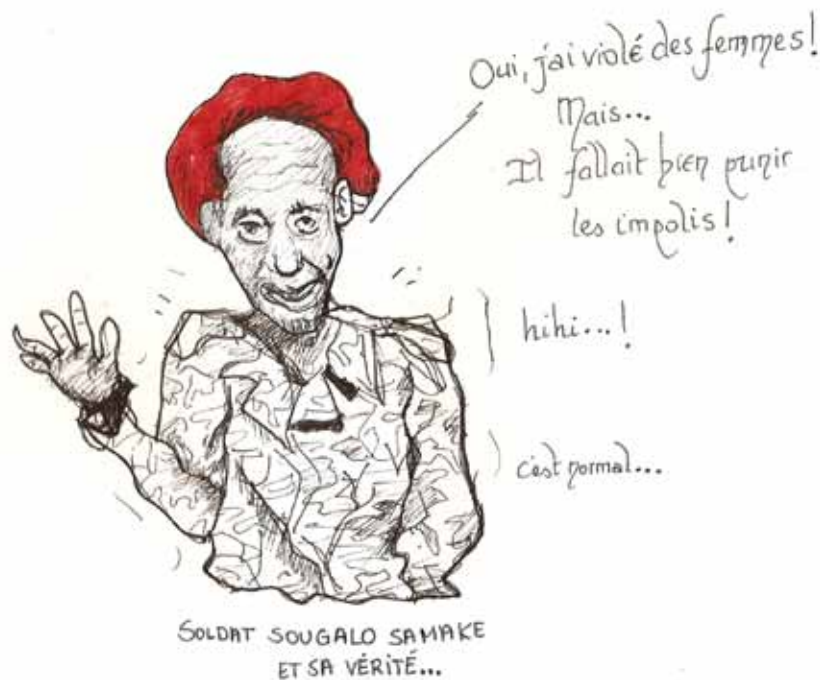 Oui, j'ai violé des femmes!
Mais...
Il fallait bien punir
les impolis!
hihi...!
c'est normal...
SOLDAT SOUGALO SAMAKE
ET SA VÉRITÉ...